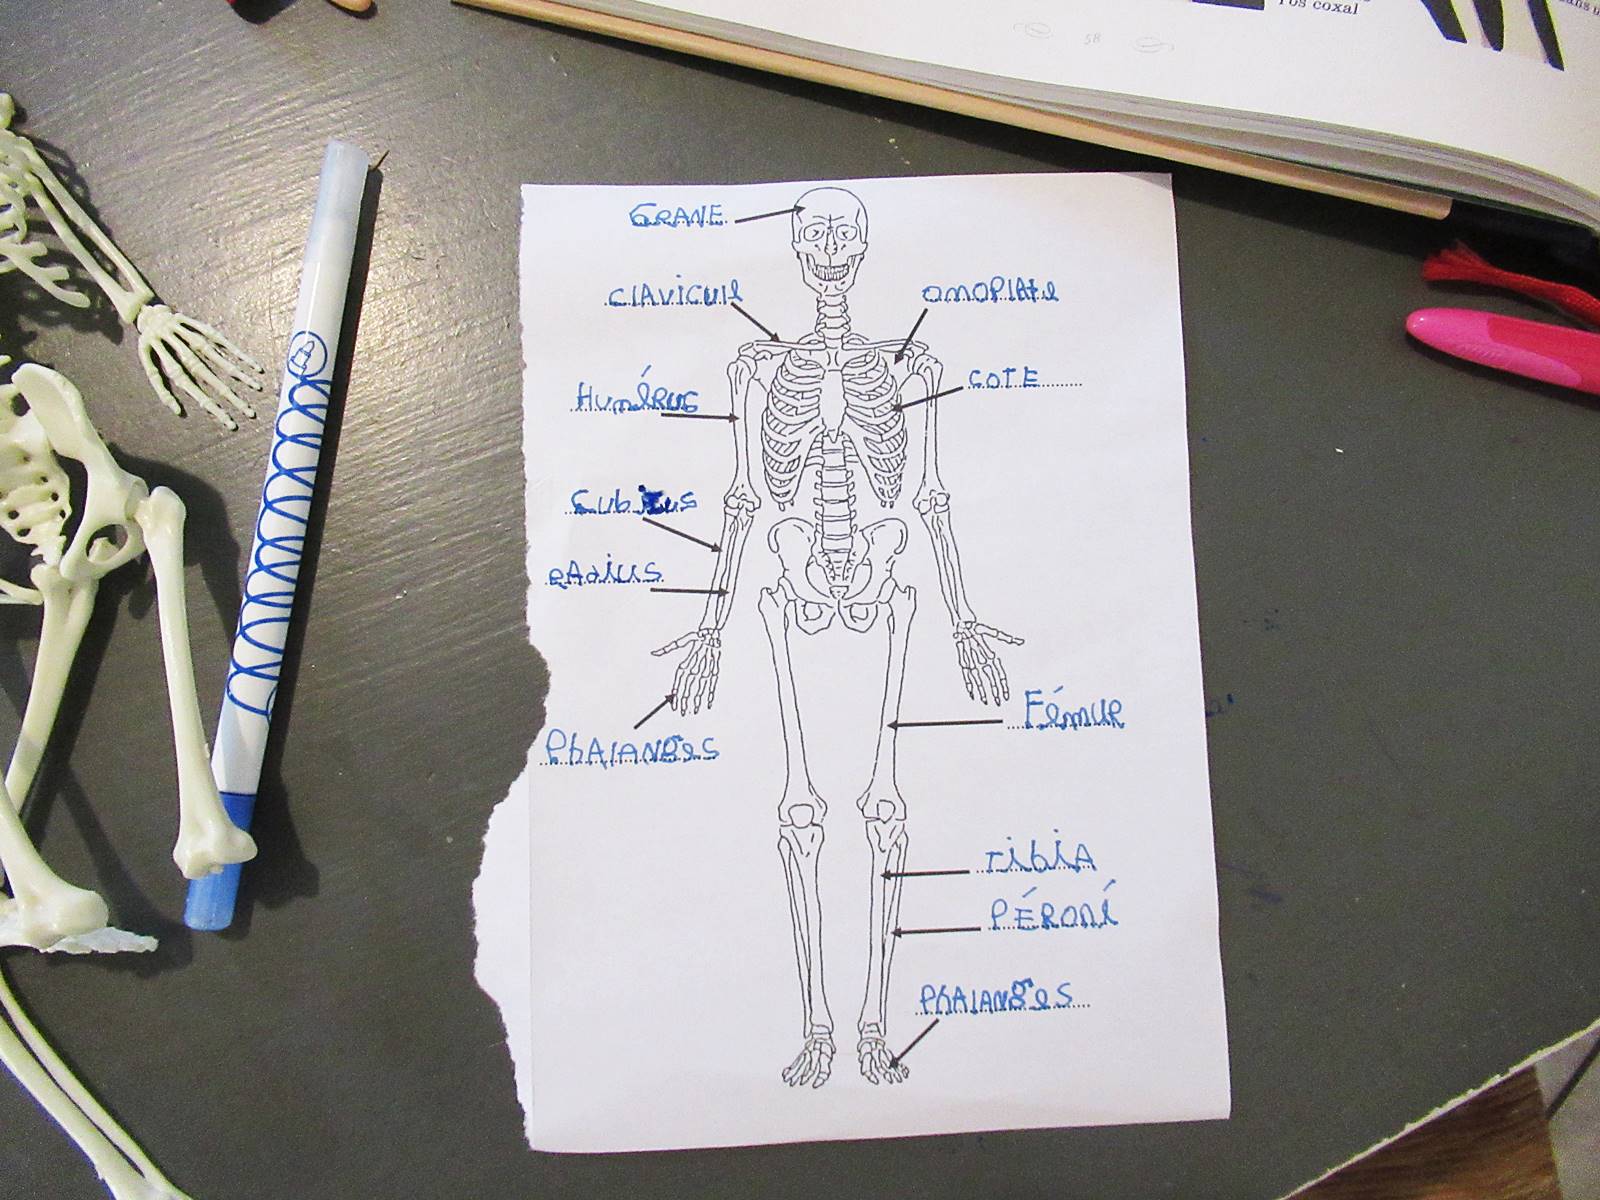 l'os coxal
58
CRANE
Clavicule
omoplate
HuméRus
COTE
Cubitus
RAdius
PhAlANgeS
FémuR
TibiA
PÉRoné
PhAlANgeS